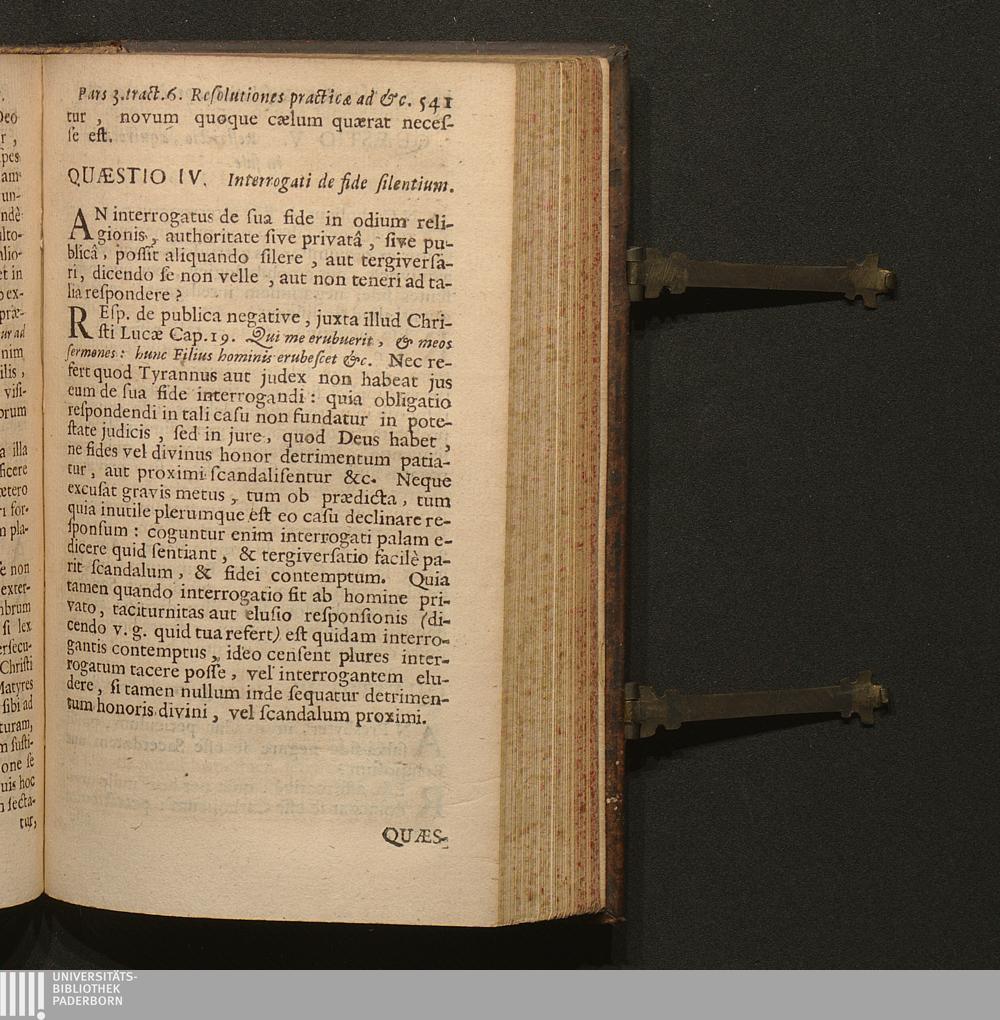 Pars 3.tract.6. Reſolutiones practicæ ad &c. 541
tur , novum quoque cælum quærat neceſ-
ſe eſt.
QUÆSTIO IV. Interrogati de fide ſilentium.
AN interrogatus de ſua fide in odium reli-
gionis , authoritate ſive privatâ , ſive pu-
blicâ , poſſit aliquando ſilere , aut tergiverſa-
ri, dicendo ſe non velle , aut non teneri ad ta-
lia reſpondere ?
REſp. de publica negative , juxta illud Chri-
ſti Lucæ Cap. 19. Qui me erubuerit , & meos
ſermones : hunc Filius hominis erubeſcet &c. Nec re-
fert quod Tyrannus aut judex non habeat jus
eum de ſua fide interrogandi : quia obligatio
reſpondendi in tali caſu non fundatur in pote-
ſtate judicis , ſed in jure , quod Deus habet ,
ne fides vel divinus honor detrimentum patia-
tur , aut proximi ſcandaliſentur &c. Neque
excuſat gravis metus , tum ob prædicta , tum
quia inutile plerumque eſt eo caſu declinare re-
ſponſum : coguntur enim interrogati palam e-
dicere quid ſentiant , & tergiverſatio facilè pa-
rit ſcandalum , & fidei contemptum. Quia
tamen quando interrogatio fit ab homine pri-
vato , taciturnitas aut eluſio reſponſionis (di-
cendo v. g. quid tua refert) eſt quidam interro-
gantis contemptus , ideo cenſent plures inter-
rogatum tacere poſſe , vel interrogantem elu-
dere , ſi tamen nullum inde ſequatur detrimen-
tum honoris divini , vel ſcandalum proximi.
QUÆS-
UNIVERSITÄTS-
BIBLIOTHEK
PADERBORN